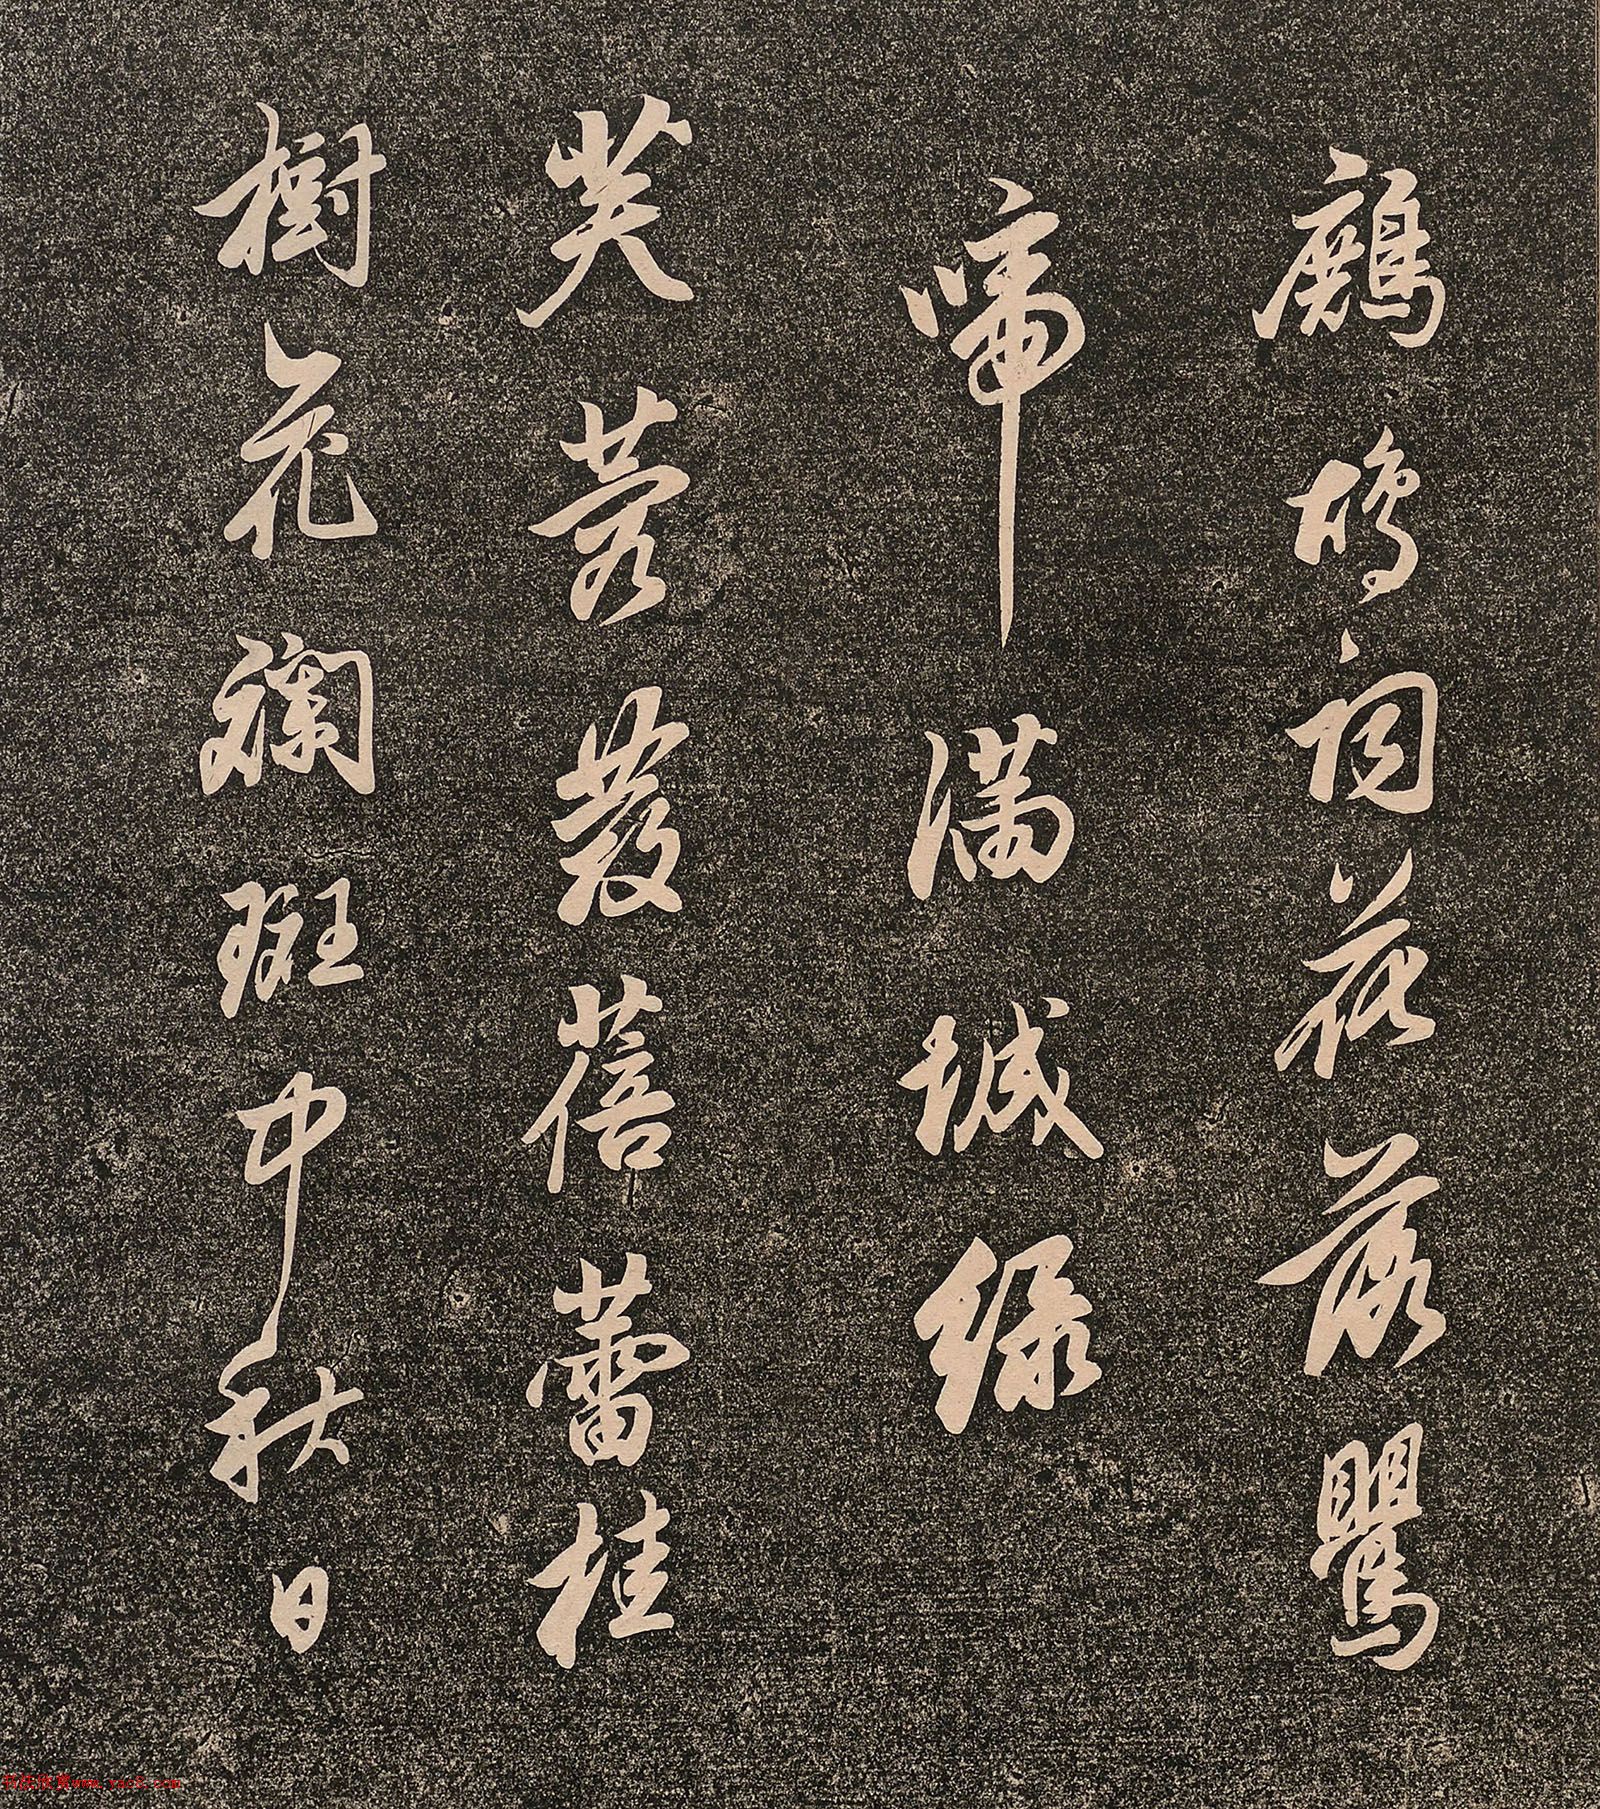 鷓鴣詞花落鸎
啼滿城綠
芙蓉發蓓蕾桂
樹花斕斑中秋日
书法欣赏www.yac8.com